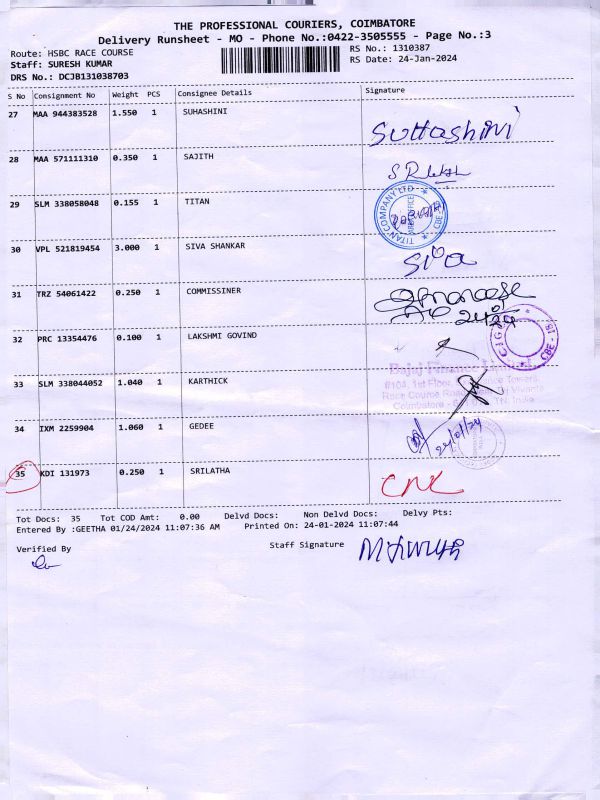 THE PROFESSIONAL COURIERS, COIMBATORE
Delivery Runsheet - MO - Phone No.:0422-3505555 - Page No.:3
Route: HSBC RACE COURSE RS No.: 1310387
Staff: SURESH KUMAR RS Date: 24-Jan-2024
DRS No.: DCJB131038703
S No Consignment No Weight PCS Consignee Details Signature
27 MAA 944383528 1.550 1 SUHASHINI Suhashini
28 MAA 571111310 0.350 1 SAJITH
29 SLM 338058048 0.155 1 TITAN
TITAN COMPANY LTD
CBE
30 VPL 521819454 3.000 1 SIVA SHANKAR Siva
31 TRZ 54061422 0.250 1 COMMISSINER
32 PRC 13354476 0.100 1 LAKSHMI GOVIND
CBE - 18
Bajaj Finance Limited
#104, 1st Floor, Towers
Race Course Road, Vivanta
Coimbatore - TN, India
33 SLM 338044052 1.040 1 KARTHICK
34 IXM 2259904 1.060 1 GEDEE 24/01/24
35 KDI 131973 0.250 1 SRILATHA CNL
Tot Docs: 35 Tot COD Amt: 0.00 Delvd Docs: Non Delvd Docs: Delvy Pts:
Entered By :GEETHA 01/24/2024 11:07:36 AM Printed On: 24-01-2024 11:07:44
Verified By Staff Signature